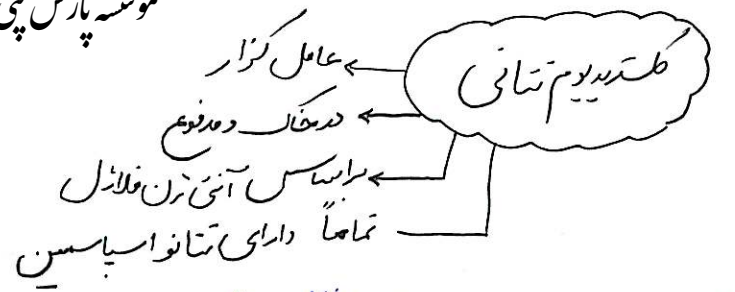 موسسه پارس پی
کلستریدیوم تتانی
عامل کزاز
در خاک و مدفوع
براساس آنتی ژن فلاژل
تماماً دارای تتانواسپاسمین